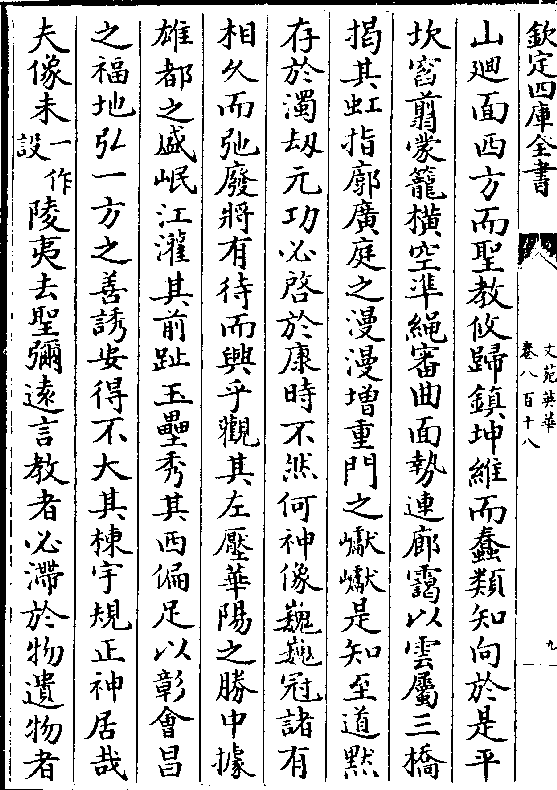 欽定四庫全書
文苑英華
卷八百十八
九
山廻面西方而聖教攸歸鎮坤維而蠢類知向於是平
坎窞翦蒙籠橫空準繩審曲面勢連廊靄以雲屬三橋
揭其虹指廓廣庭之漫漫增重門之巘巘是知至道黙
存於濁刼元功必啓於康時不然何神像巍巍冠諸有
相久而弛廢將有待而興乎觀其左壓華陽之勝中據
雄都之盛岷江灌其前趾玉壘秀其西偏足以彰會昌
之福地弘一方之善誘安得不大其棟宇規正神居哉
夫像未一作設陵夷去聖彌遠言教者必滯於物遺物者